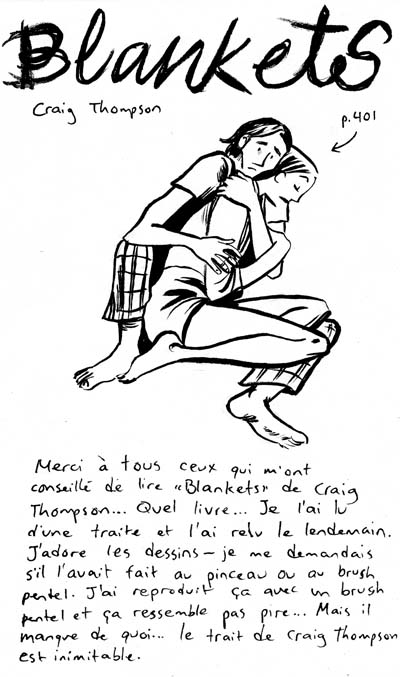 Blankets
Craig Thompson
p.401
Merci à tous ceux qui m'ont
conseillé de lire «Blankets» de Craig
Thompson... Quel livre... Je l'ai lu
d'une traite et l'ai relu le lendemain.
J'adore les dessins - je me demandais
s'il l'avait fait au pinceau ou au brush
pentel. J'ai reproduit ça avec un brush
pentel et ça ressemble pas pire... Mais il
manque de quoi... le trait de Craig Thompson
est inimitable.